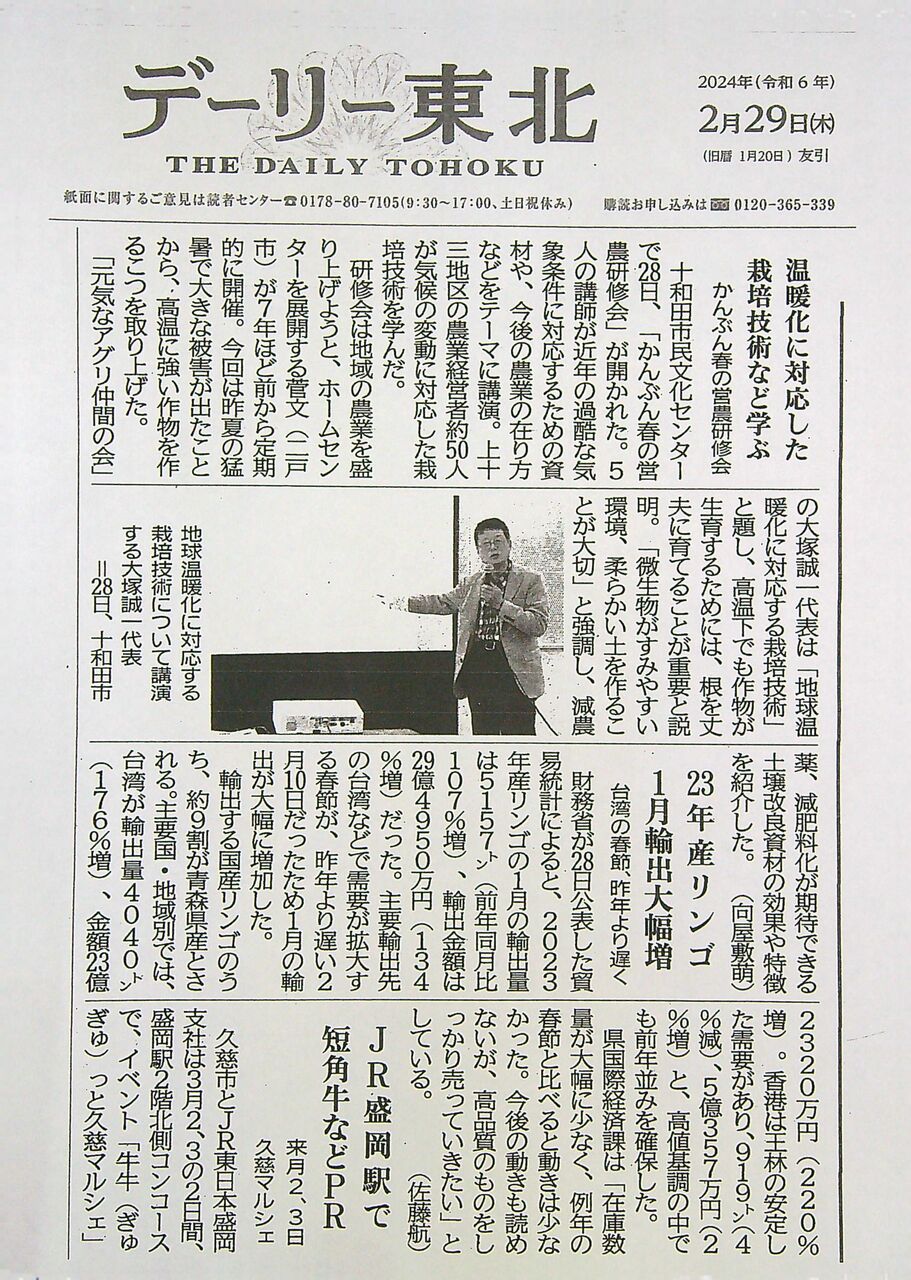 デーリー東北
THE DAILY TOHOKU
2024年(令和6年)
2月29日(木)
(旧暦 1月20日) 友引
紙面に関するご意見は読者センター☎0178-80-7105(9:30～17:00、土日祝休み)
購読お申し込みは 0120-365-339
温暖化に対応した
栽培技術など学ぶ
かんぶん春の営農研修会
十和田市民文化センター
で28日、「かんぶん春の営
農研修会」が開かれた。5
人の講師が近年の過酷な気
象条件に対応するための資
材や、今後の農業の在り方
などをテーマに講演。上十
三地区の農業経営者約50人
が気候の変動に対応した栽
培技術を学んだ。
研修会は地域の農業を盛
り上げようと、ホームセン
ターを展開する菅文（二戸
市）が7年ほど前から定期
的に開催。今回は昨夏の猛
暑で大きな被害が出たこと
から、高温に強い作物を作
るこつを取り上げた。
「元気なアグリ仲間の会」
の大塚誠一代表は「地球温
暖化に対応する栽培技術」
と題し、高温下でも作物が
生育するためには、根を丈
夫に育てることが重要と説
明。「微生物がすみやすい
環境、柔らかい土を作るこ
とが大切」と強調し、減農
地球温暖化に対応する
栽培技術について講演
する大塚誠一代表
＝28日、十和田市
薬、減肥料化が期待できる
土壌改良資材の効果や特徴
を紹介した。（向屋敷萌）
23年産リンゴ
1月輸出大幅増
台湾の春節、昨年より遅く
財務省が28日公表した貿
易統計によると、2023
年産リンゴの1月の輸出量
は5157㌧（前年同月比
107％増）、輸出金額は
29億4950万円（134
％増）だった。主要輸出先
の台湾などで需要が拡大す
る春節が、昨年より遅い2
月10日だったため1月の輸
出が大幅に増加した。
輸出する国産リンゴのう
ち、約9割が青森県産とさ
れる。主要国・地域別では、
台湾が輸出量4040㌧
（176％増）、金額23億
2320万円（220％
増）。香港は王林の安定し
た需要があり、919㌧（4
％減）、5億357万円（2
％増）と、高値基調の中で
も前年並みを確保した。
県国際経済課は「在庫数
量が大幅に少なく、例年の
春節と比べると動きは少な
かった。今後の動きも読め
ないが、高品質のものをし
っかり売っていきたい」と
している。（佐藤航）
JR盛岡駅で
短角牛などPR
来月2、3日
久慈マルシェ
久慈市とJR東日本盛岡
支社は3月2、3の2日間、
盛岡駅2階北側コンコース
で、イベント「牛牛（ぎゅ
ぎゅ）っと久慈マルシェ」